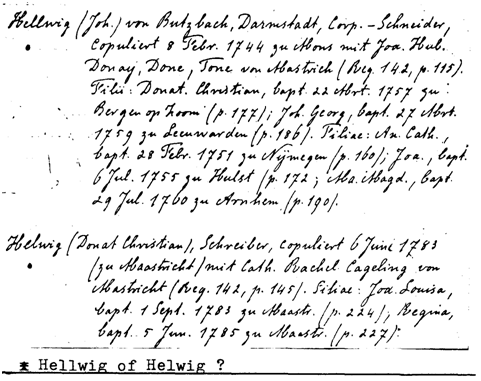 Hellwig (Joh.) von Butzbach, Darmstadt, Corp. - Schneider,
copuliert 8 Febr. 1744 zu Mons mit Joa. Hub.
Donay, Done, Tone von Mastrich (Reg. 142, p. 115).
Filii: Donat. Christian, bapt. 22 Mrt. 1757 zu
Bergen op Zoom (p. 177); Joh. Georg, bapt. 27 Mrt.
1759 zu Leeuwarden (p. 186). Filiae: An. Cath.,
bapt. 28 Febr. 1751 zu Nijmegen (p. 160); Joa., bapt.
6 Jul. 1755 zu Hulst (p. 172; Ma. Magd., bapt.
29 Jul. 1760 zu Arnhem (p. 190).
Helwig (Donat Christian), Schreiber, copuliert 6 Juni 1783
(zu Maastricht) mit Cath. Rachel Cageling von
Mastricht (Reg. 142, p. 145). Filiae: Joa. Louisa,
bapt. 1 Sept. 1783 zu Maastr. (p. 224); Regina,
bapt. 5 Jun. 1785 zu Maastr. (p. 227).
* Hellwig of Helwig ?